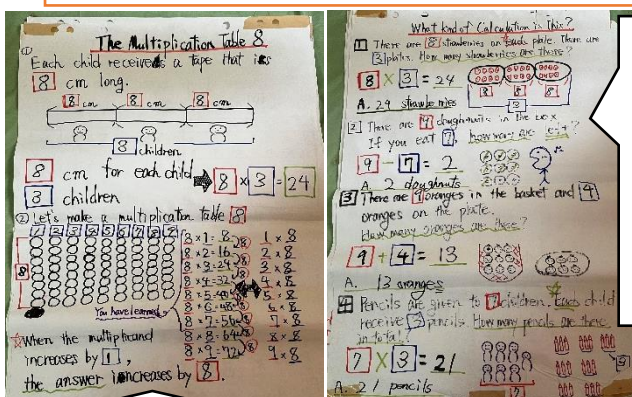 ①
The Multiplication Table 8
Each child receives a tape that is
8 cm long.
8 cm 8 cm 8 cm
3 children
8 cm for each child
3 children
8 × 3 = 24
② Let's make a multiplication table 8
1 2 3 4 5 6 7 8 9
8
8 × 1 = 8
8 × 2 = 16
8 × 3 = 24
8 × 4 = 32
8 × 5 = 40
8 × 6 = 48
8 × 7 = 56
8 × 8 = 64
8 × 9 = 72
1 × 8
2 × 8
3 × 8
4 × 8
5 × 8
6 × 8
7 × 8
8 × 8
9 × 8
You have learned
☆When the multiplicand
increases by 1,
the answer increases by 8.
What kind of Calculation is This?
1 There are 8 strawberries on each plate. There are
3 plates. How many strawberries are there?
8 × 3 = 24
8 8 8
3
A. 24 strawberries
2 There are 9 doughnuts in the box
If you eat 7, how many are
9 - 7 = 2
A. 2 doughnuts
3 There are 9 oranges in the basket and 4
oranges on the plate.
How many oranges are there?
9 + 4 = 13
A. 13 oranges
4 Pencils are given to 7 children. Each child
receive 3 pencils. How many pencils are there
in total?
7 × 3 = 21
A. 21 pencils